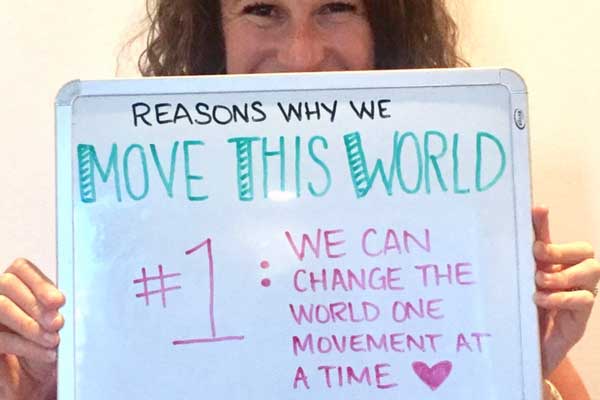 REASONS WHY WE
MOVE THIS WORLD
#1: WE CAN
CHANGE THE
WORLD ONE
MOVEMENT AT
A TIME ♥